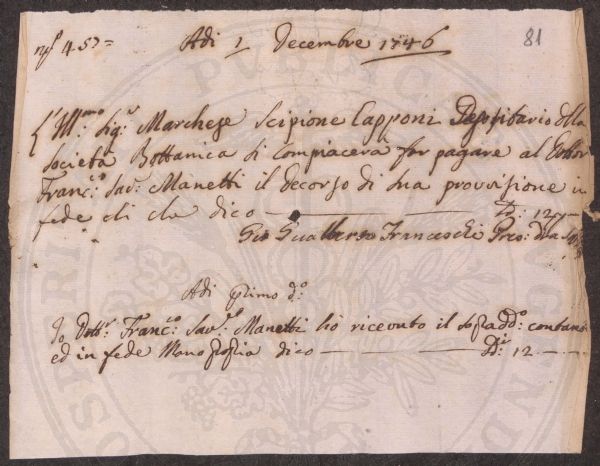 nº 45 =
Adi 1 Decembre 1746
81
L'Illmo: Sigr: Marchese Scipione Capponi Depositario della
Società Bottanica si compiacerà far pagare al Dottor
Francº: Savº: Manetti il decorso di sua provisione in
fede di che dico ——— D: 12 —
Gio Gualberto Franceschi Pro:
Adi Primo dº:
Io Dottr: Francº: Savº: Manetti hò ricevuto il sopraddº: contanti
ed in fede Mano Propria dico ——— D: 12 —